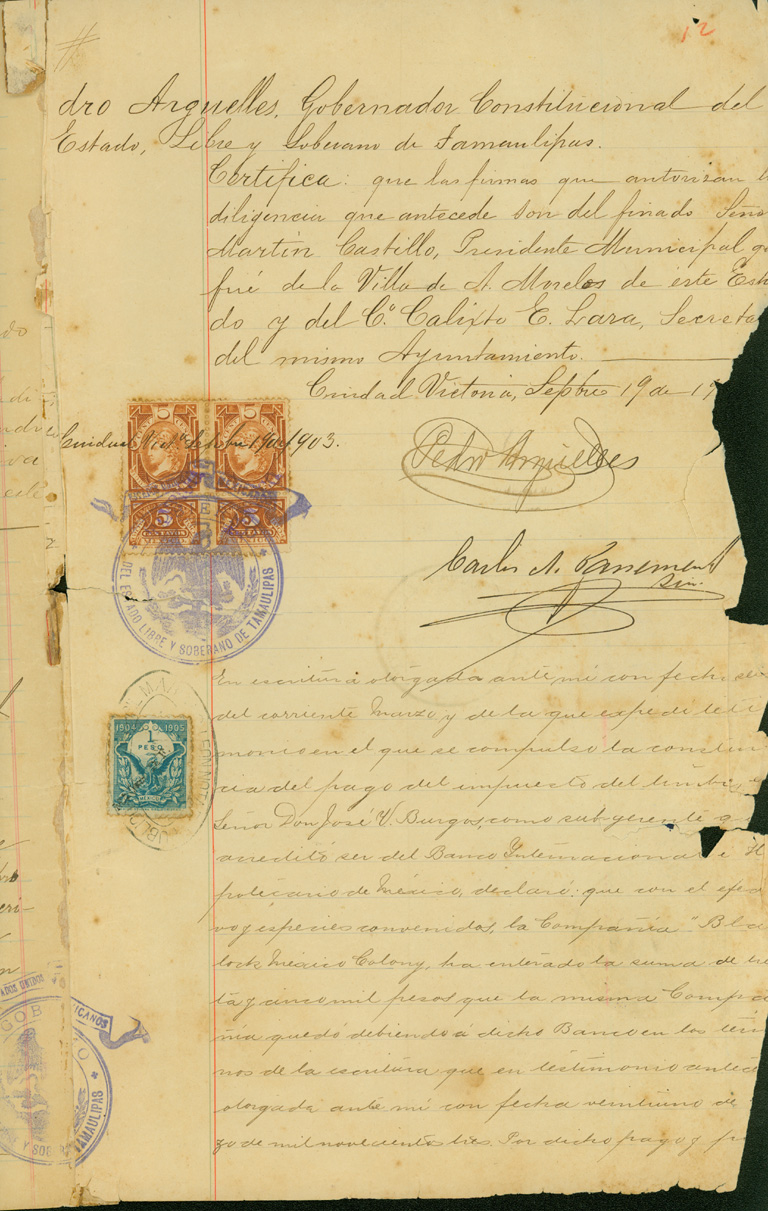 12
dro Arguelles, Gobernador Constitucional del
Estado, Libre y Soberano de Tamaulipas.
Certifica: que las firmas que autorizan l
diligencia que antecede son del finado Seño
Martín Castillo, Presidente Municipal q
fué de la Villa de A. Morelos de éste Esta
do y del C. Calixto E. Lara, Secreta
del mismo Ayuntamiento.
Ciudad Victoria, Septbre 19 de 19
1903.
5 5
5 5
CENTAVOS
DEL ESTADO LIBRE Y SOBERANO DE TAMAULIPAS
Pedro Arguelles
Carlos A.
Srio.
En escritura otorgada ante mí con fecha
del corriente Marzo y de la que expedí testi
monio en el que se compulsó la constan
cia del pago del impuesto del timbre, e
Señor Don José V. Burgos, como sub-gerente q
acreditó ser del Banco Internacional é H
potecario de México, declaró: que con el efec
vo y especies convenidos, la Compañía "Bla
lock México Colony, ha enterado la suma de tre
ta y cinco mil pesos que la misma Compa
ñía quedó debiendo á dicho Banco en los térmi
nos de la escritura que en testimonio antece
otorgada ante mí con fecha veintiuno de
zo de mil novecientos tres. Por dicho pago y
1904 1905
1
PESO
MEXICO
ADOS UNIDOS
ICANOS
GOB
Y SOB
TAMAULIPAS